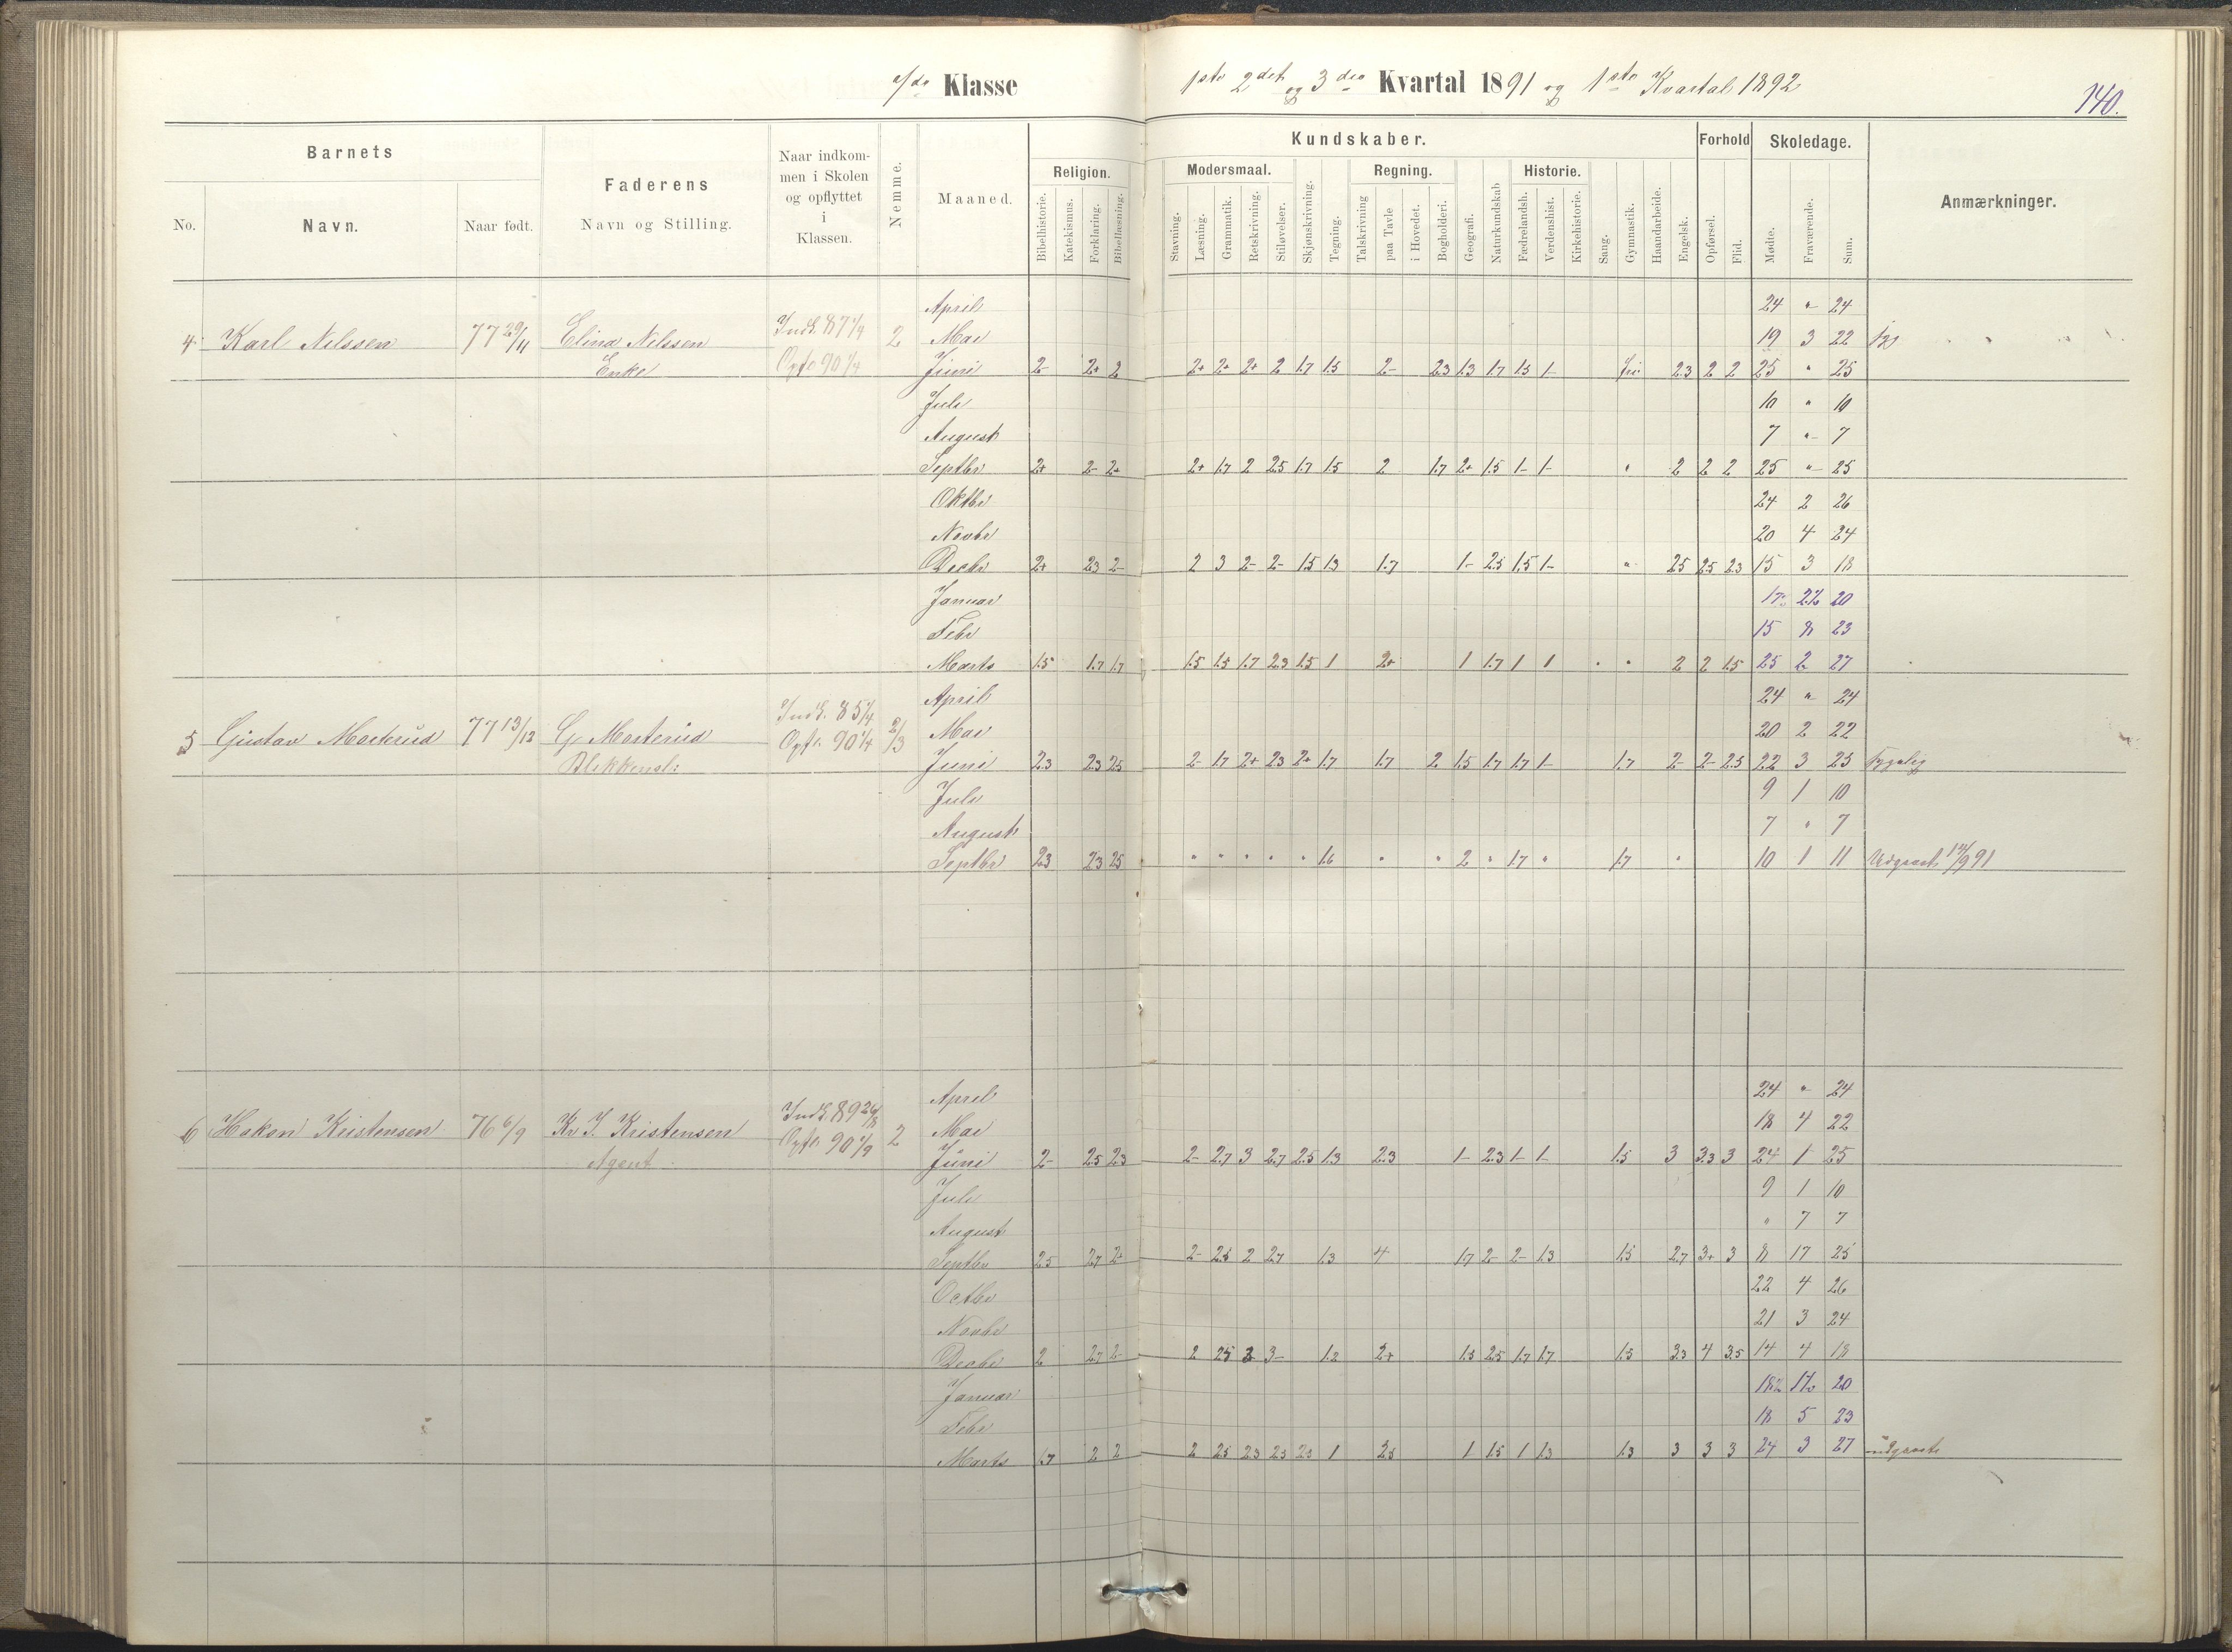 Klasse
1ste 2det og 3die Kvartal 1891 og 1ste Kvartal 1892
140.
Barnets
No.
Navn.
Naar født.
Faderens
Navn og Stilling.
Naar indkom-
men i Skolen
og opflyttet
i
Klassen.
Nemme.
Maaned.
Kundskaber.
Religion.
Bibelhistorie.
Katekismus.
Forklaring.
Bibellæsning.
Modersmaal.
Stavning.
Læsning.
Grammatik.
Retskrivning.
Stiløvelser.
Skjønskrivning.
Tegning.
Regning.
Talskrivning
paa Tavle
i Hovedet.
Bogholderi.
Geografi.
Naturkundskab
Historie.
Fædrelandsh.
Verdenshist.
Kirkehistorie.
Sang.
Gymnastik.
Haandarbeide.
Engelsk.
Forhold
Opførsel.
Flid.
Skoledage.
Mødte.
Fraværende.
Sum.
Anmærkninger.
April 24 " 24
4 Karl Nilssen 77 29/11 Elina Nilssen Indk. 87 1/9 2 Mai 19 3 22
Enke Opfl. 90 1/4 Juni 2- 2+ 2 2+ 2+ 2+ 2 1.7 1.5 2- 2.3 1.3 1.7 1.5 1- fri 2.3 2 2 25 " 25
Juli 10 " 10
August 7 " 7
Septbr 2+ 2- 2+ 2+ 1.7 2 2.5 1.7 1.5 2 1.7 2+ 1.5 1- 1- " 2 2 2 25 " 25
Oktbr 24 2 26
Novbr 20 4 24
Decbr 2+ 2.3 2- 2 3 2- 2- 1.5 1.3 1.7 1- 2.5 1.5 1- " 2.5 2.5 2.3 15 3 18
Januar 20
Febr 15 8 23
Marts 1.5 1.7 1.7 1.5 1.5 1.7 2.3 1.5 1 2+ 1 1.7 1 1 " " 2 2 1.5 25 2 27
April 24 " 24
5 Gustav Mosterud 77 13/12 G. Mosterud Indk. 85 1/4 Opfl. 90 1/4 2/3 Mai 20 2 22
Blikkensl: Juni 2.3 2.3 2.5 2- 1.7 2+ 2.3 2+ 1.7 1.7 2 1.5 1.7 1.7 1- 1.7 2- 2- 2.5 22 3 25
Juli 9 1 10
August 7 " 7
Septbr 2.3 2.3 2.5 " " " " " 1.6 " " 2 " 1.7 " 1.7 " 10 1 11 Udgaaet 14/9 91
April 24 " 24
6 Hakon Kristensen 76 6/9 Kr. J. Kristensen Indk. 89 26/8 2 Mai 18 4 22
Agent Opfl. 90 1/9 Juni 2- 2.5 2.3 2- 2.7 3 2.7 2.5 1.3 2.3 1- 2.3 1- 1- 1.5 3 3.3 3 24 1 25
Juli 9 1 10
August " 7 7
Septbr 2.5 2.7 2+ 2- 2.5 2 2.7 1.3 4 1.7 2- 2- 1.3 1.5 2.7 3+ 3 8 17 25
Octbr 22 4 26
Novbr 21 3 24
Decbr 2 2.7 2- 2 2.5 3 3- 1.2 2+ 1.5 2.5 1.7 1.7 1.5 3.3 4 3.5 14 4 18
Januar 20
Febr 18 5 23
Marts 1.7 2 2 2 2.5 2.3 2.3 2.3 1 2.5 1 1.5 1 1.3 1.3 3 3 3 24 3 27 udgaaet